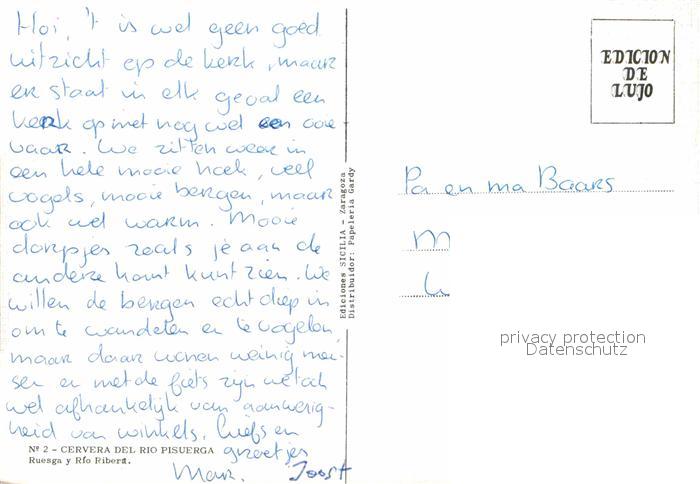 Hoi, 't is wel geen goed
uitzicht op de kerk, maar
er staat in elk geval een
kerk op met nog wel een ooie
vaar. We zitten weer in
een hele mooie hoek, veel
vogels, mooie bergen, maar
ook wel warm. Mooie
dorpjes zoals je aan de
andere kant kunt zien. We
willen de bergen echt diep in
om te wandelen en te vogelen,
maar daar wonen weinig men-
sen en met de fiets zijn we toch
wel afhankelijk van aanwezig-
heid van winkels. Liefs en
groetjes
Mar. Joost
Nº 2 - CERVERA DEL RIO PISUERGA
Ruesga y Río Ribera.
Ediciones SICILIA - Zaragoza
Distribuidor: Papeleria Gardy
EDICION
DE
LUJO
Pa en ma Baars
M
L
privacy protection
Datenschutz